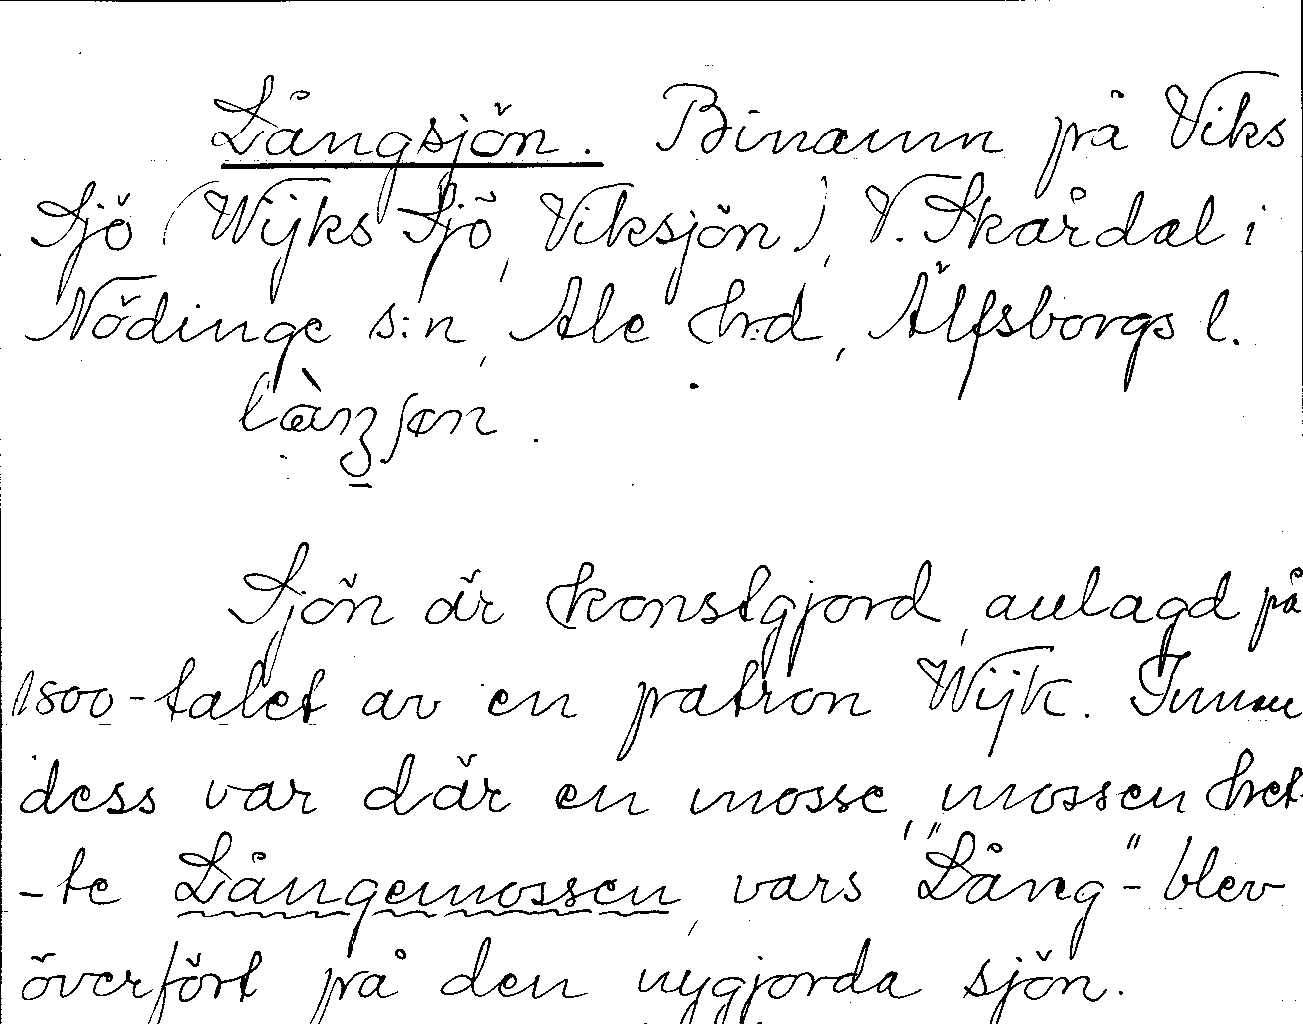 Långsjön. Binamn på Viks
Sjö (Wijks Sjö, Viksjön), V. Skårdal i
Nödinge s:n, Ale hrd, Älfsborgs l.
Sjön är konstgjord, anlagd på
1800-talet av en patron Wijk. Innan
dess var där en mosse, mossen het-
-te Långemossen, vars "Lång"- blev
överfört på den nygjorda sjön.